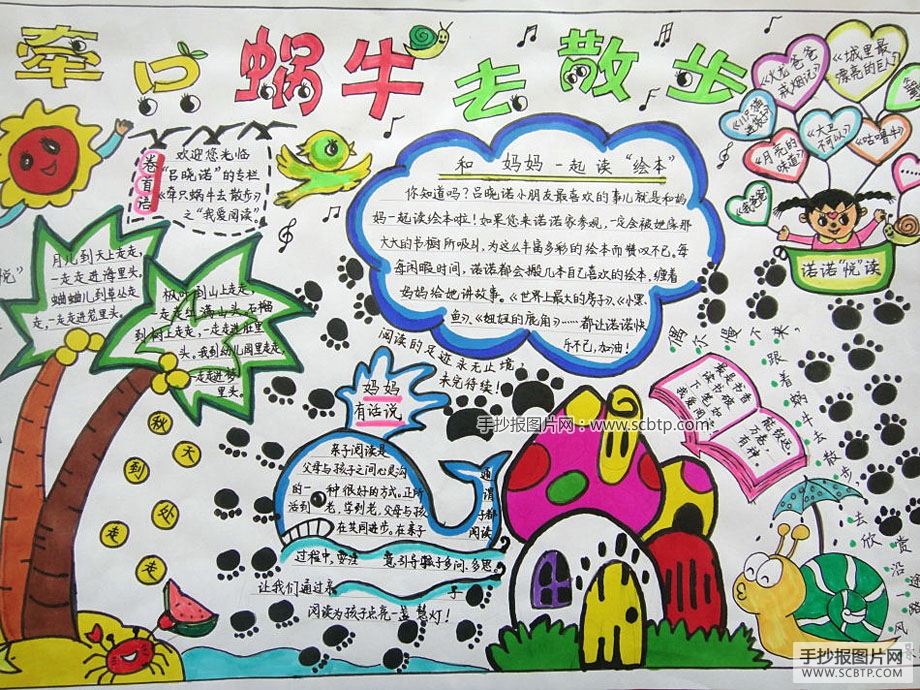 牵只蜗牛去散步
卷首语
欢迎您光临
“吕晓诺”的专栏
《牵只蜗牛去散步》
之“我爱阅读”。
和妈妈一起读“绘本”
你知道吗?吕晓诺小朋友最喜欢的事儿就是和妈
妈一起读绘本啦!如果您来诺诺家参观,一定会被她家那
大大的书橱所吸引,为这么丰富多彩的绘本而赞叹不已。每
每闲暇时间,诺诺都会搬几本自己喜欢的绘本,缠着
妈妈给她讲故事。《世界上最大的房子》、《小黑
鱼》、《妞妞的鹿角》……都让诺诺快
乐不已,加油!
《火龙爸爸
戒烟记》
《城里最
漂亮的巨人》
《大卫
不可以》
《咕噜牛》
《月亮的
味道》
诺诺“悦”读
月儿到天上走走,
一走走进海里头。
蝈蝈儿到草丛走
走,一走走进笼里头。
枫叶到山上走走,
一走走红满山头。石榴
到树上走走,一走走进肚里
头。我到幼儿园里走走,
一走走进梦
里头。
秋天到处走走
阅读的足迹永无止境,
未完待续!
妈妈
有话说
亲子阅读是
父母与孩子之间心灵沟
通的一种很好的方式。正所谓
活到老,学到老,父母与孩子都
在共同进步。在亲子阅读
过程中,要注意引导孩子多问、多思。
让我们通过亲子
阅读为孩子点亮一盏慧灯!
偶尔慢下来,跟着蜗牛去散步,去欣赏沿途风
手抄报图片网:www.scbtp.com
手抄报图片网
WWW.SCBTP.COM